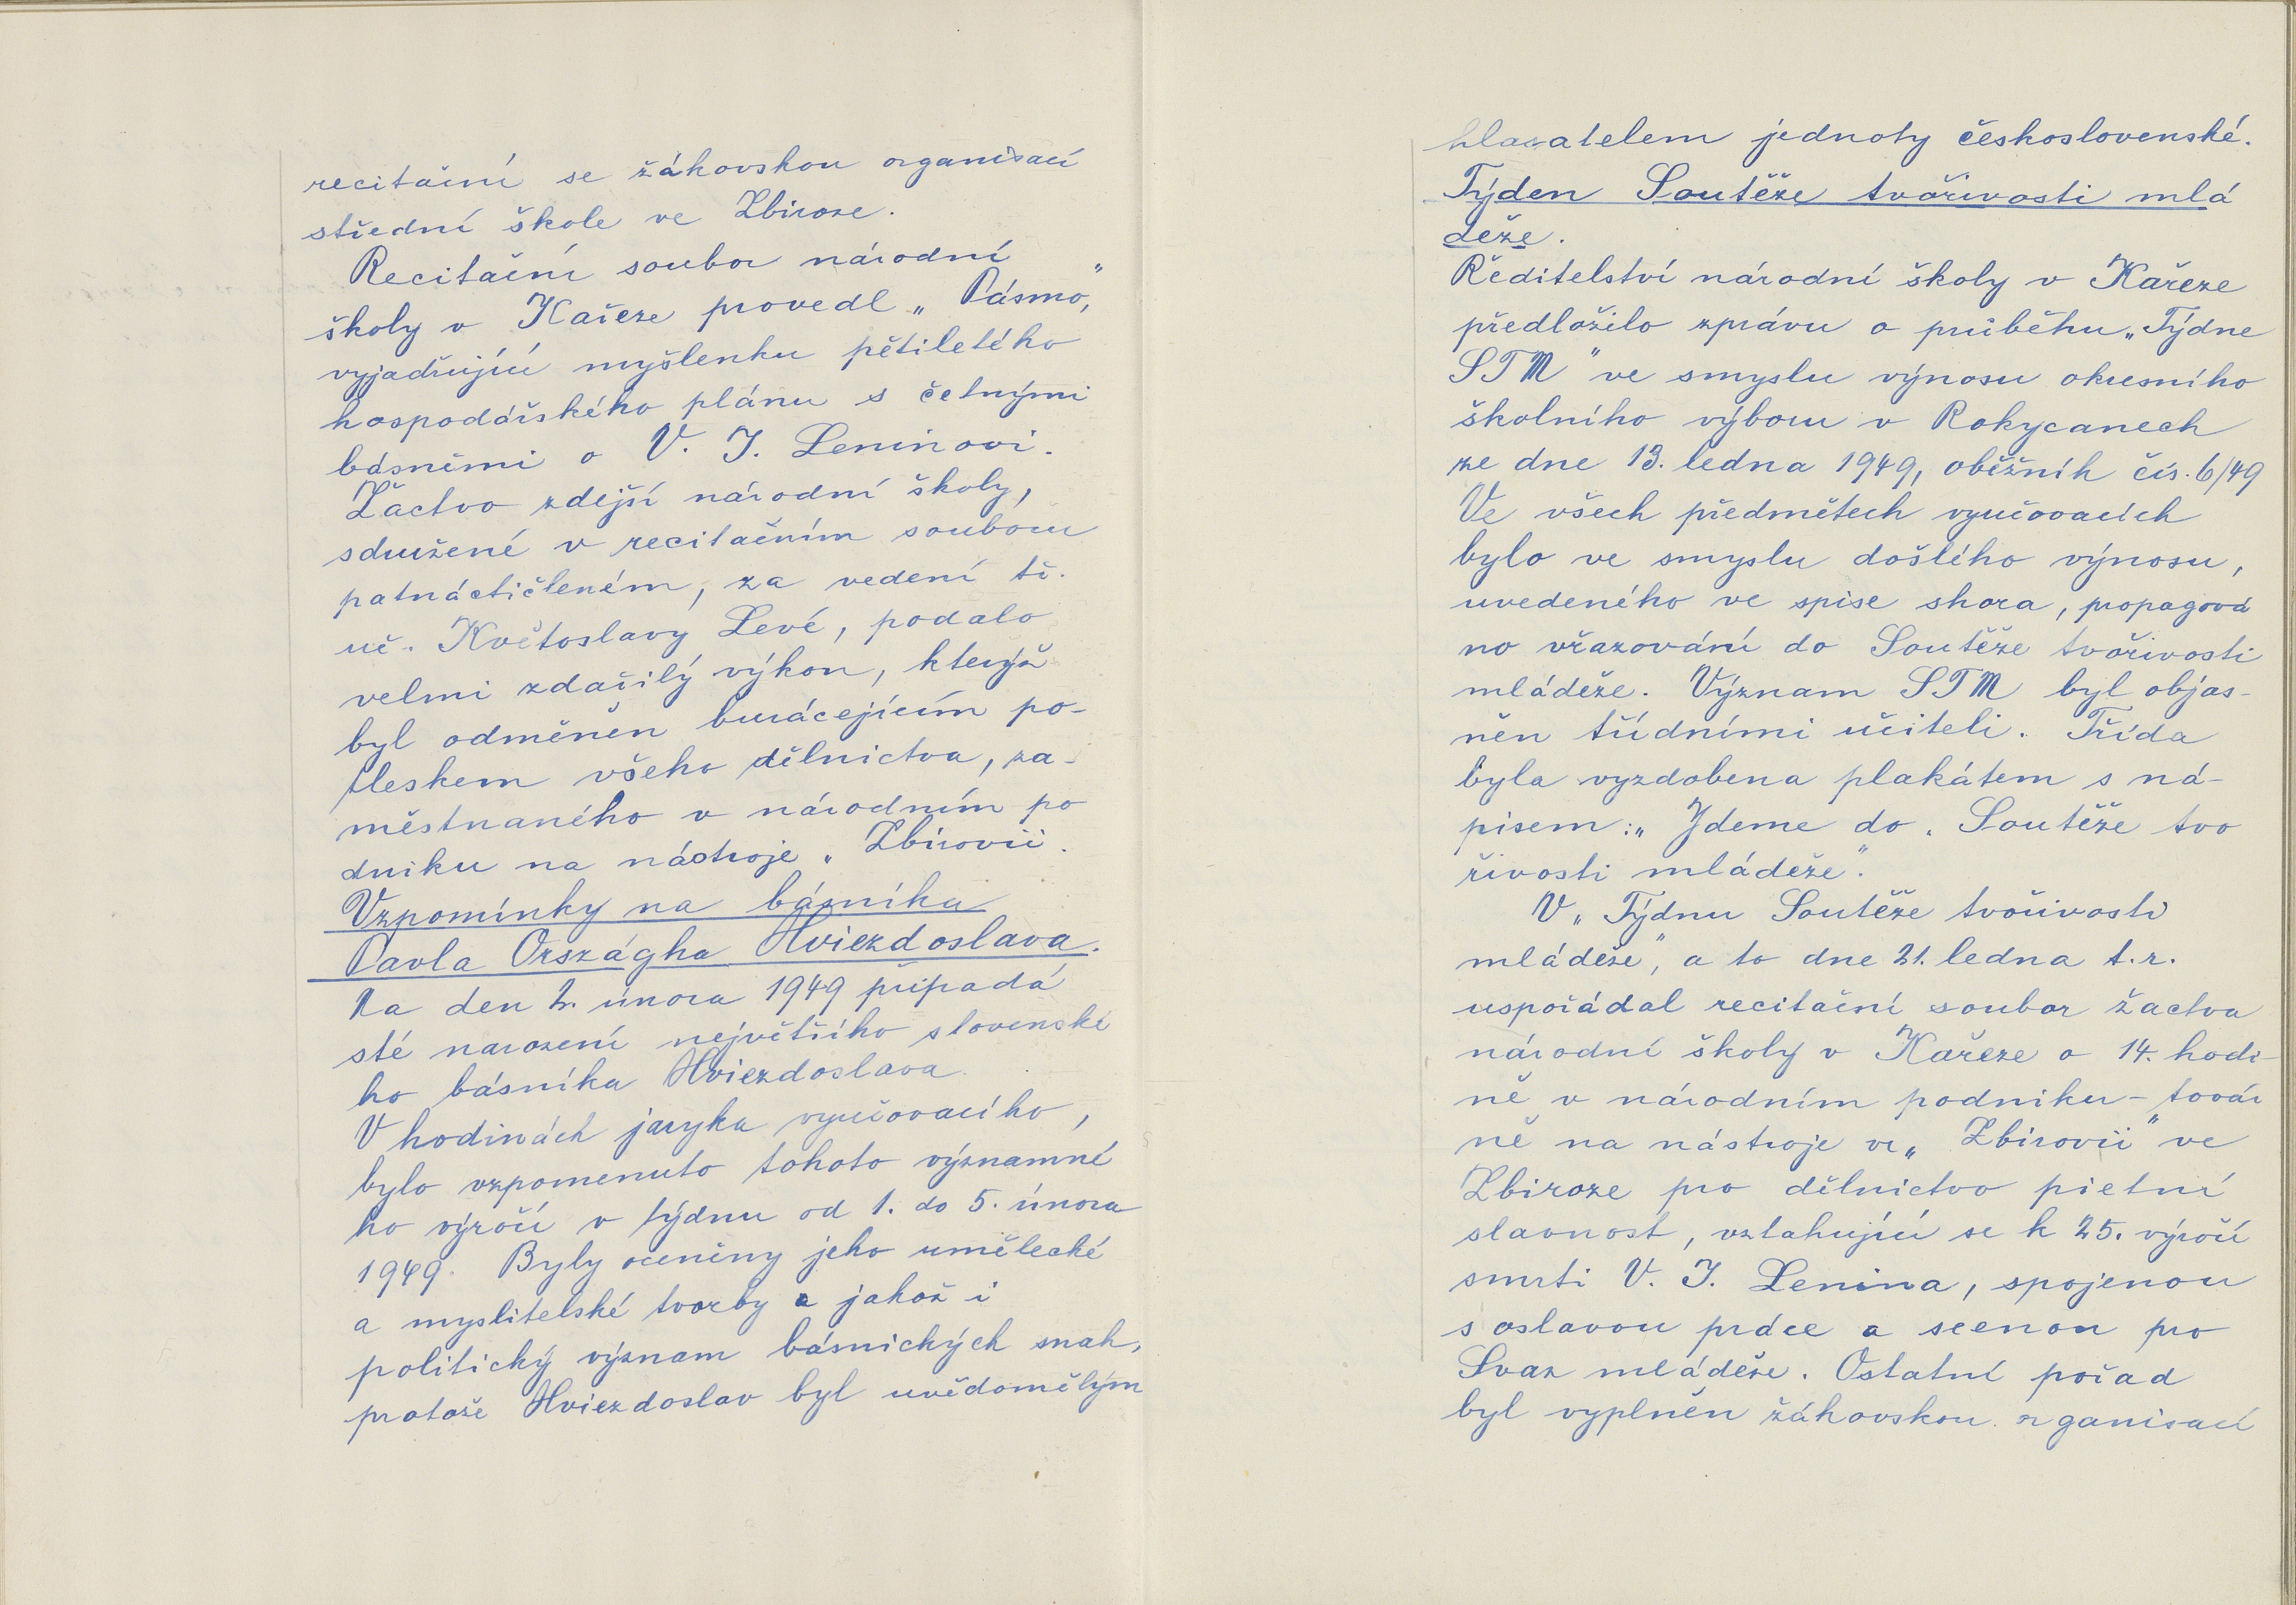 recitační se žákovskou organisací
střední škole ve Zbiroze.
Recitační soubor národní
školy v Kařeze provedl „Pásmo,"
vyjadřující myšlenku pětiletého
hospodářského plánu s četnými
básněmi o V. I. Leninovi.
Žactvo zdejší národní školy,
sdružené v recitačním souboru
patnáctičleném, za vedení tř.
uč. Květoslavy Levé, podalo
velmi zdařilý výkon, kterýž
byl odměněn burácejícím po-
tleskem všeho dělnictva, za-
městnaného v národním po
dniku na nástroje „Zbirovii.
Vzpomínky na básníka
Pavla Országha Hviezdoslava.
Na den 2. února 1949 připadá
sté narození největšího slovenské
ho básníka Hviezdoslava.
V hodinách jazyka vyučovacího,
bylo vzpomenuto tohoto významné
ho výročí v týdnu od 1. do 5. února
1949. Byly oceněny jeho umělecké
a myslitelské tvorby a jakož i
politický význam básnických snah,
protože Hviezdoslav byl uvědomělým
hlasatelem jednoty československé.
Týden Soutěže tvořivosti mlá
deže.
Ředitelství národní školy v Kařeze
předložilo zprávu o průběhu „Týdne
STM" ve smyslu výnosu okresního
školního výboru v Rokycanech
ze dne 13. ledna 1949, oběžník čís. 6/49
Ve všech předmětech vyučovacích
bylo ve smyslu došlého výnosu,
uvedeného ve spise shora, propagová
no vřazování do Soutěže tvořivosti
mládeže. Význam STM byl objas-
něn třídními učiteli. Třída
byla vyzdobena plakátem s ná-
pisem: „Jdeme do Soutěže tvo
řivosti mládeže".
V „Týdnu Soutěže tvořivosti
mládeže", a to dne 21. ledna t.r.
uspořádal recitační soubor žactva
národní školy v Kařeze o 14. hodi-
ně v národním podniku - továr
ně na nástroje ve „Zbirovii" ve
Zbiroze pro dělnictvo pietní
slavnost, vztahující se k 25. výročí
smrti V. I. Lenina, spojenou
s oslavou práce a scenou pro
Svaz mládeže. Ostatní pořad
byl vyplněn žákovskou organisací